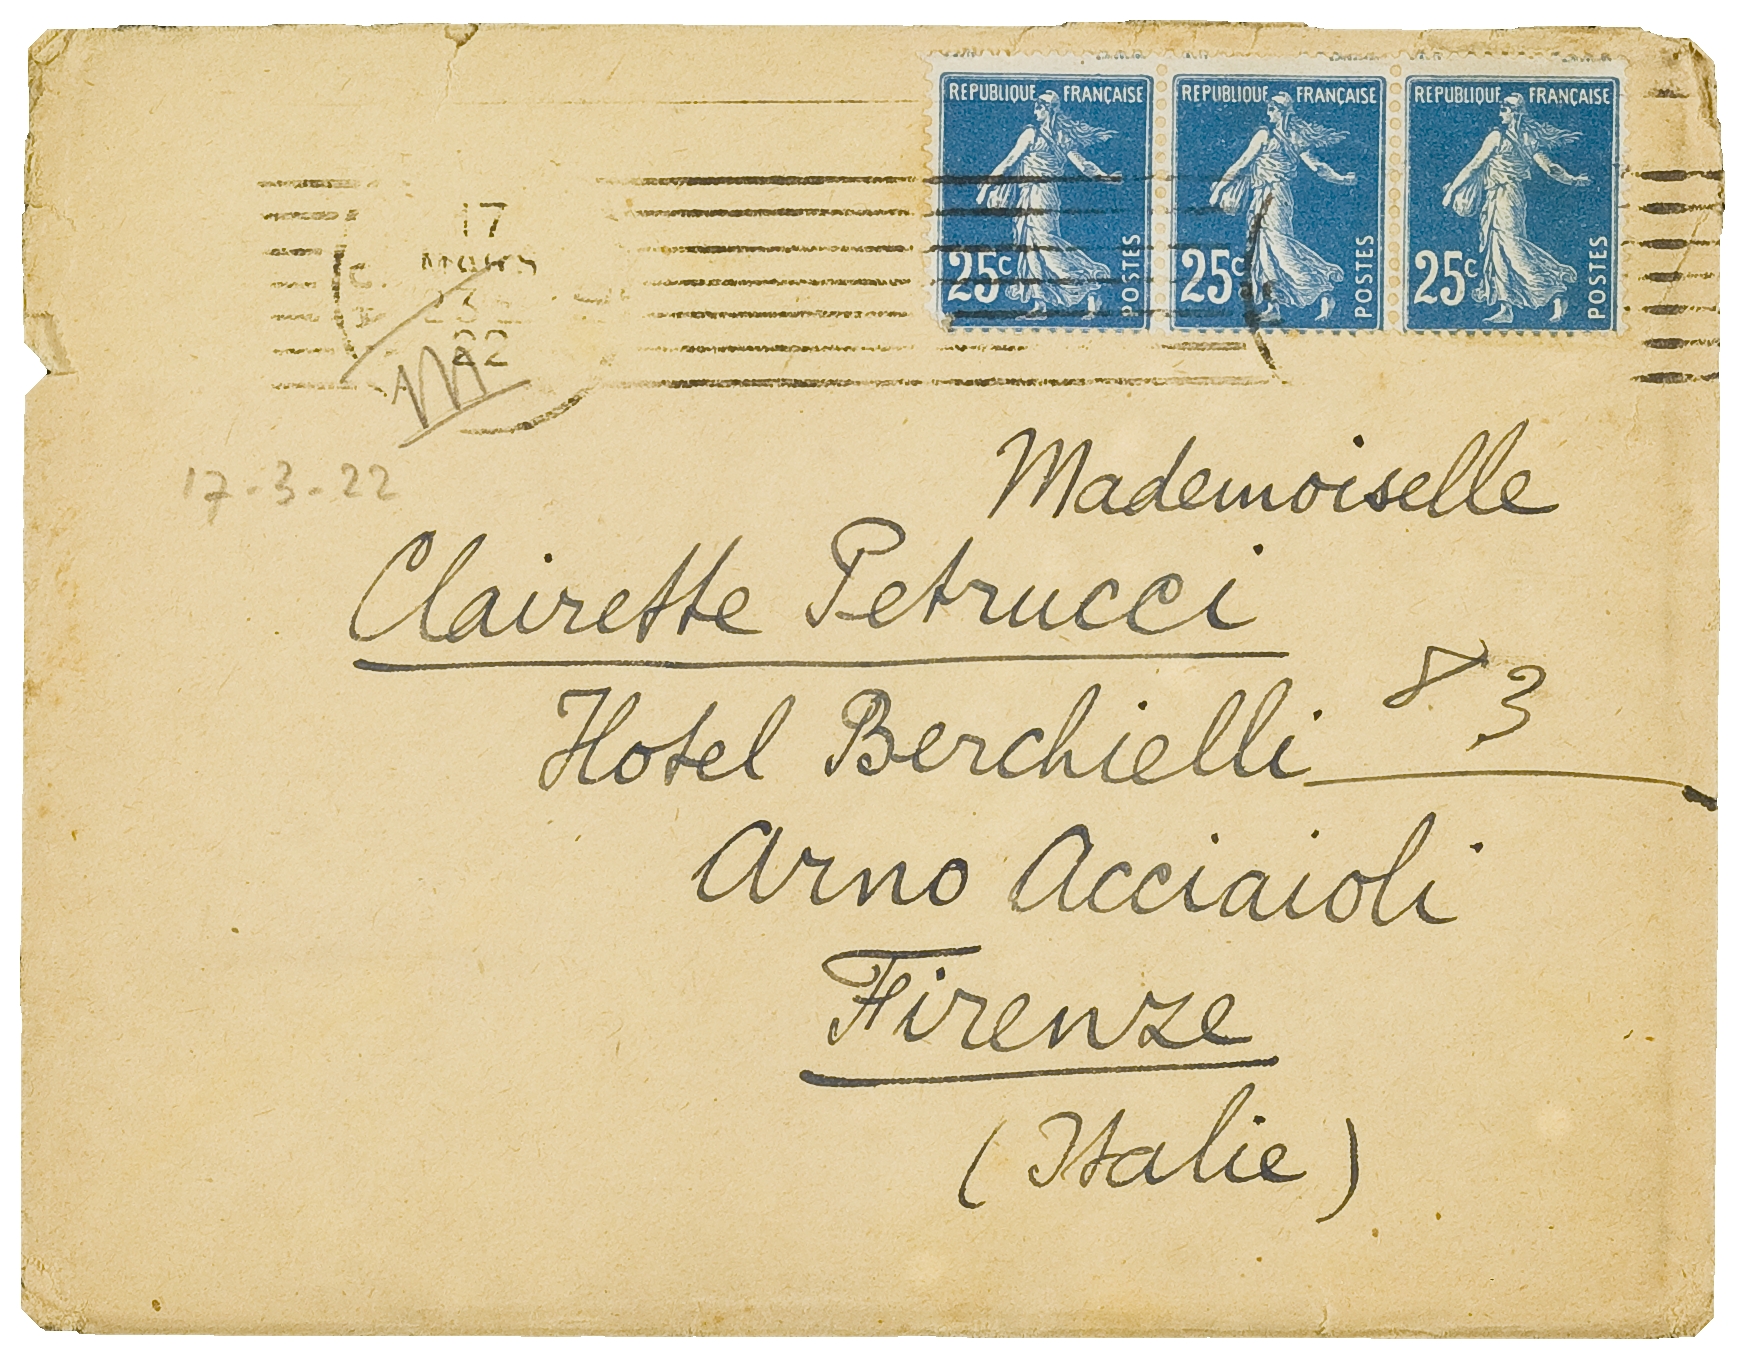 REPUBLIQUE FRANÇAISE REPUBLIQUE FRANÇAISE REPUBLIQUE FRANÇAISE
25c POSTES 25c POSTES 25c POSTES
17
MARS
22
17-3-22
Mademoiselle
Clairette Petrucci
83
Hotel Berchielli
Arno Acciaioli
Firenze
(Italie)